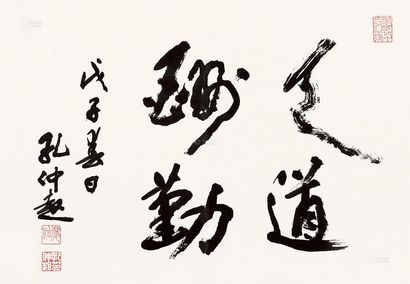 天道
酬勤
戊子春日
孔仲起